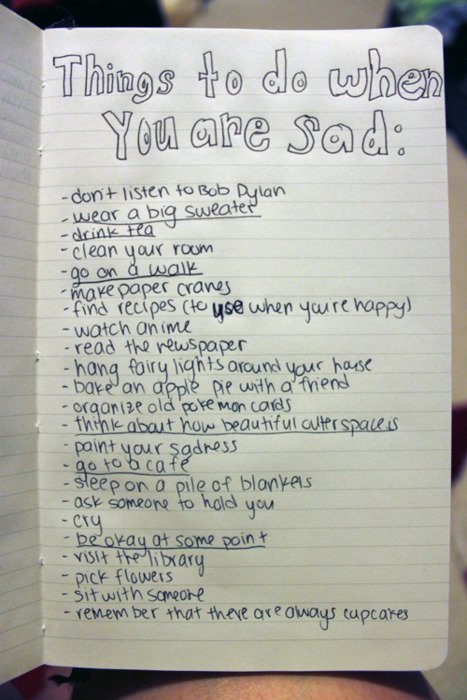 Things to do when
You are sad:
- don't listen to Bob Dylan
- wear a big sweater
- drink tea
- clean your room
- go on a walk
- make paper cranes
- find recipes (to use when you're happy)
- watch anime
- read the newspaper
- hang fairy lights around your house
- bake an apple pie with a friend
- organize old pokemon cards
- think about how beautiful outerspace is
- paint your sadness
- go to a café
- sleep on a pile of blankets
- ask someone to hold you
- cry
- be okay at some point
- visit the library
- pick flowers
- sit with someone
- remember that there are always cupcakes